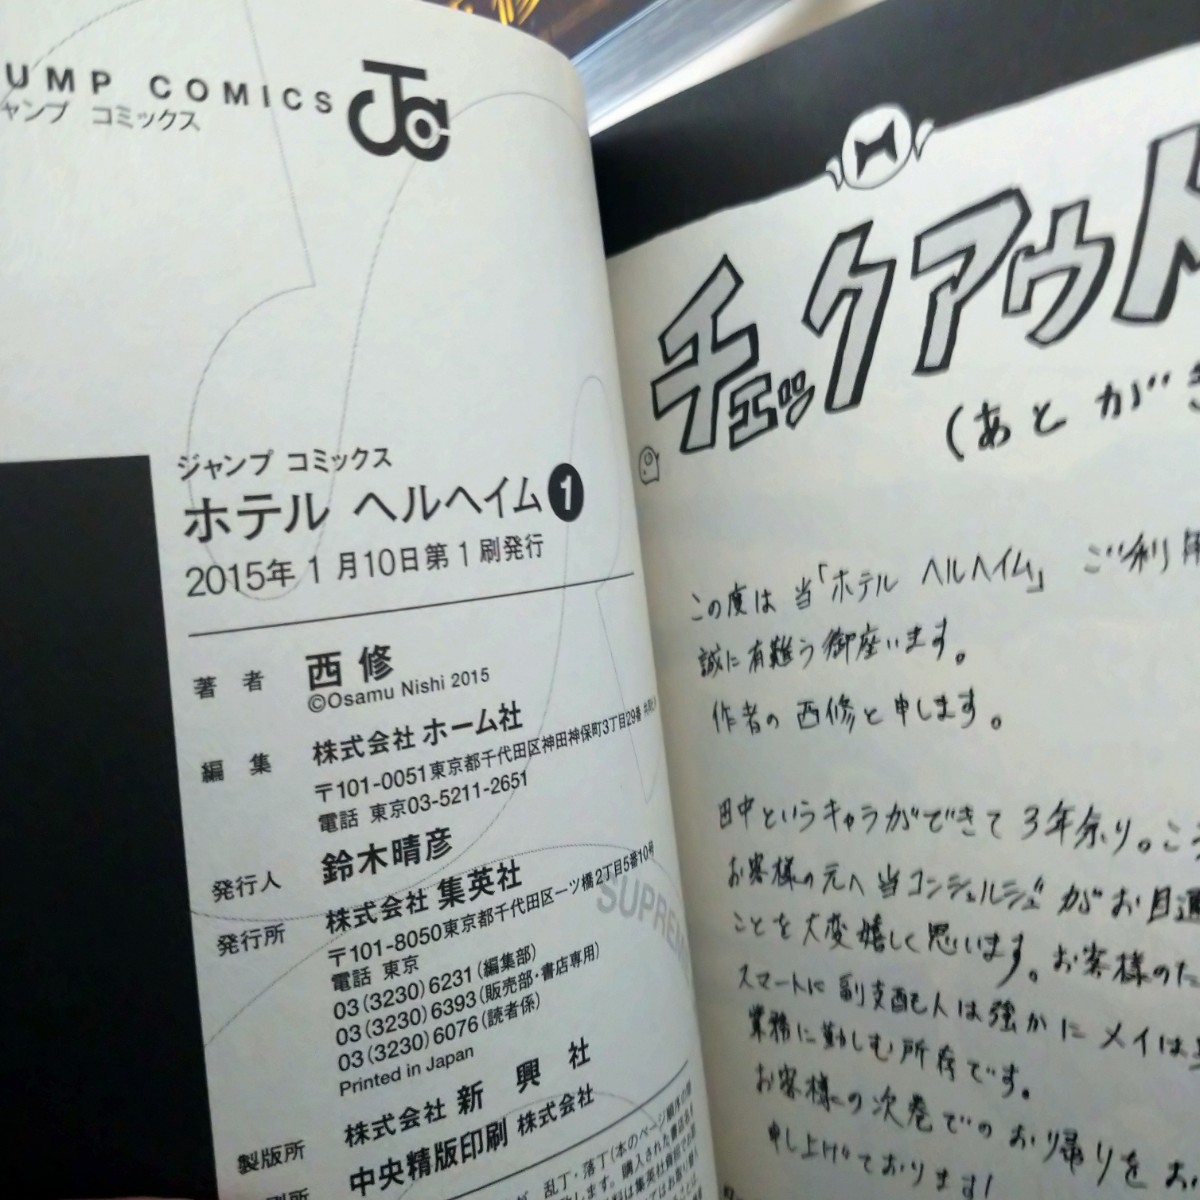 UMP COMICS
ャンプ コミックス
JC
ジャンプ コミックス
ホテル ヘルヘイム 1
2015年 1 月10日第 1 刷発行
著 者 西 修
©Osamu Nishi 2015
編 集 株式会社 ホーム社
〒101-0051東京都千代田区神田神保町3丁目29番
電話 東京03-5211-2651
発行人 鈴木晴彦
発行所 株式会社 集英社
〒101-8050東京都千代田区一ツ橋2丁目5番10号
電話 東京
03(3230)6231(編集部)
03(3230)6393(販売部・書店専用)
03(3230)6076(読者係)
Printed in Japan
製版所 株式会社 新 興 社
刷所 中央精版印刷 株式会社
乱丁・落丁(本のページ順序の間
SUPREM
チェックアウト
(あとがき
この度は 当「ホテル ヘルヘイム」 ご利用
誠に有難う御座います。
作者の 西修と申します。
田中というキャラができて 3年余り。こ
お客様の元へ当コンシェルジュがお目通
ことを大変嬉しく思います。お客様のた
スマートに 副支配人は強かに メイは
業務に勤しむ所存です。
お客様の次巻でのお帰りをお
申し上げております!